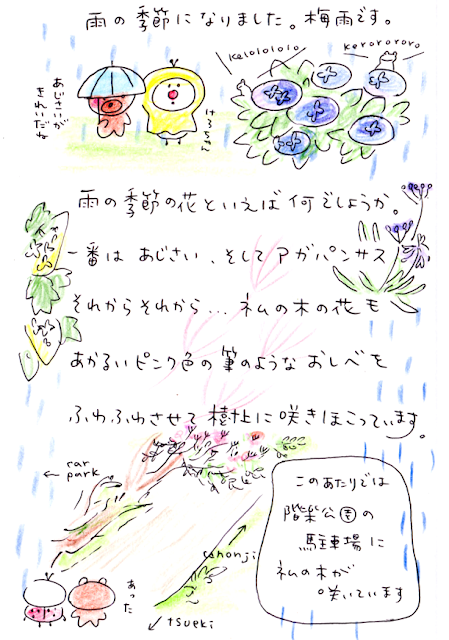 雨の季節になりました。梅雨です。
kelolololo
kerorororo
あじさいが
きれいだね
けろちゃん
雨の季節の花といえば何でしょうか。
一番はあじさい、そしてアガパンサス
それからそれから…ネムの木の花も
あかるいピンク色の筆のようなおしべを
ふわふわさせて樹上に咲きほこっています。
← car
park
sanonji
tsueki
あった
このあたりでは
偕楽公園の
駐車場に
ネムの木が
咲いています